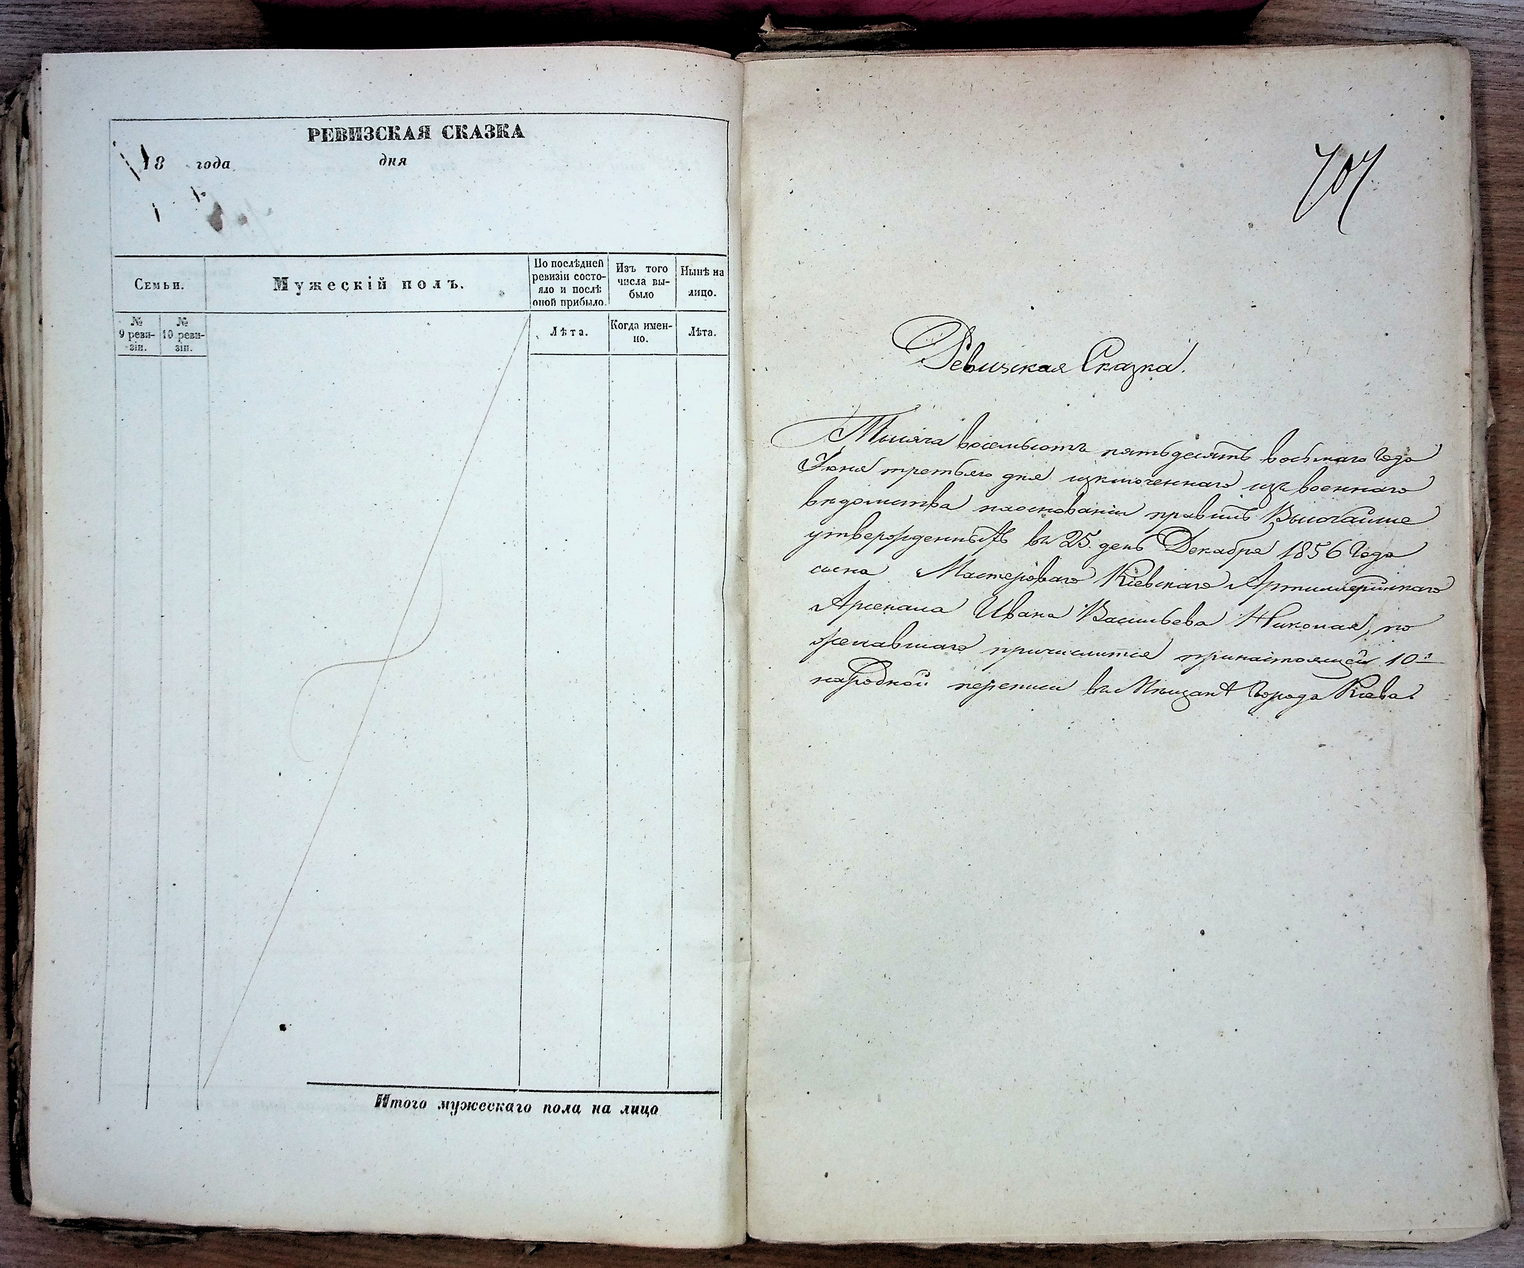 РЕВИЗСКАЯ СКАЗКА
18 года дня
Семьи.
Мужескій полъ.
По послѣдней
ревизіи состо-
яло и послѣ
оной прибыло.
Изъ того
числа вы-
было
Нынѣ на
лицо.
№
9 реви-
зіи.
№
10 реви-
зіи.
Лѣта.
Когда имен-
но.
Лѣта.
Итого мужескаго пола на лицо
707
Ревизская Сказка.
Тысяча восемьсотъ пятьдесятъ восьмаго года
Іюня третьяго дня изключеннаго изъ военнаго
вѣдомства наоснованіи правилъ Высочайше
утвержденныхъ въ 25 день Декабря 1856 года
сына Мастероваго Кіевскаго Артиллерійскаго
Арсенала Ивана Васильева Николая, по
желавшаго причислится принастоящей 10й
народной переписи въ Мѣщанѣ города Кіева.